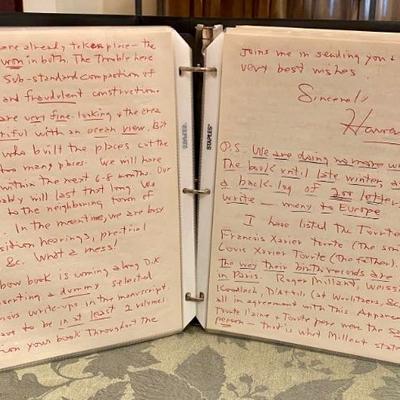 are already taken place — the
won in both. The Trouble here
sub-standard compaction of
and fraudulent construction.
are very fine-looking & the area
tiful with an ocean view. But
who built the places cut the
too many places. We will have
within the next 6-8 months. Our
bably will last that long. We
to the neighboring town of
In the meantime, we are busy
sition hearings, pretrial
&c. What a mess!
bow book is coming along O.K
senting a dummy selected
ious write-ups in the manuscript
ave to be in at least 2 volumes
on your book throughout the
STAPLES
STAPLES
Joins me in sending you &
very best wishes
Sincerely
P.S. We are doing no more
The book until late winter, as
a back-log of 200 letters
write — many to Europe
I have listed the Tourte
Francois Xavier Tourte (The son
Louis Xavier Tourte (The father).
The way their birth records are
in Paris. Roger Millant, Weiss
(at Wurlitzers, &c
all in agreement with this. Apparen
Tourte l'aine & Tourte pere were the
person — That is what Millant stat